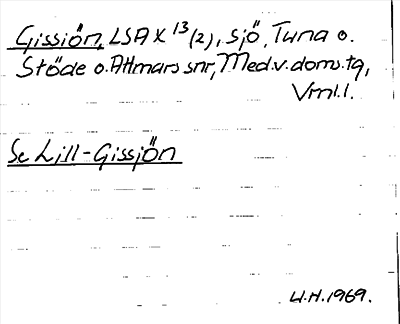 Gissjön, LSA X 13 (2), sjö, Tuna o.
Stöde o. Attmars snr, Med.v. doms. tg,
Vrnl. l.
Se Lill-Gissjön
U.H. 1969.